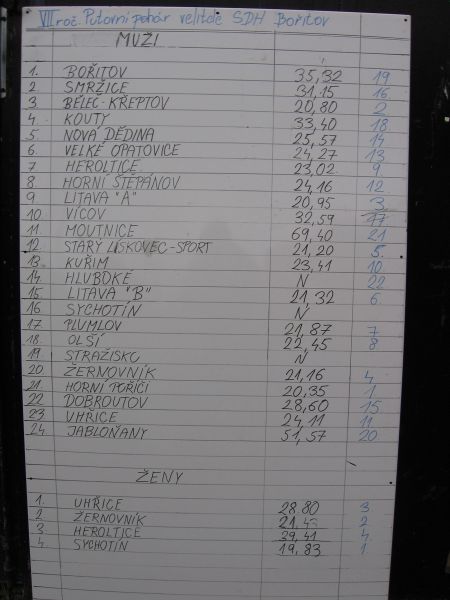 VII roč. Putovní pohár velitele SDH Bořitov
MUŽI
1. BOŘITOV 35,32 19
2 SMRŽICE 31,15 16
3 BĚLEC-KŘEPTOV 20,80 2
4 KOUTY 33,40 18
5 NOVÁ DĚDINA 25,57 14
6 VELKÉ OPATOVICE 24,27 13
7 HEROLTICE 23,02 9
8 HORNÍ ŠTĚPÁNOV 24,16 12
9 LITAVA "A" 20,95 3
10 VÍCOV 32,59 17
11 MOUTNICE 69,40 21
12 STARÝ LÍSKOVEC-SPORT 21,20 5.
13. KUŘIM 23,41 10
14. HLUBOKÉ N 22
15 LITAVA "B" 21,32 6
16 SYCHOTÍN N
17. PLUMLOV 21,87 7
18. OLŠÍ 22,45 8
19. STRAŽISKO N
20. ŽERNOVNÍK 21,16 4
21 HORNÍ POŘÍČÍ 20,35 1
22 DOBROUTOV 28,60 15
23 UHŘICE 24,11 11
24. JABLOŇANY 51,57 20
ŽENY
1. UHŘICE 28,80 3
2 ŽERNOVNÍK 2
3 HEROLTICE 39,41 4
4 SYCHOTÍN 19,83 1